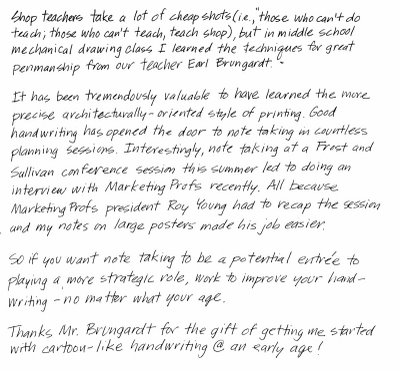 Shop teachers take a lot of cheap shots (i.e., "those who can't do
teach; those who can't teach, teach shop), but in middle school
mechanical drawing class I learned the techniques for great
penmanship from our teacher Earl Brungardt.
It has been tremendously valuable to have learned the more
precise architecturally-oriented style of printing. Good
handwriting has opened the door to note taking in countless
planning sessions. Interestingly, note taking at a Frost and
Sullivan conference session this summer led to doing an
interview with Marketing Profs recently. All because
Marketing Profs president Roy Young had to recap the session
and my notes on large posters made his job easier.
So if you want note taking to be a potential entrée to
playing a more strategic role, work to improve your hand-
writing - no matter what your age.
Thanks Mr. Brungardt for the gift of getting me started
with cartoon-like handwriting @ an early age!